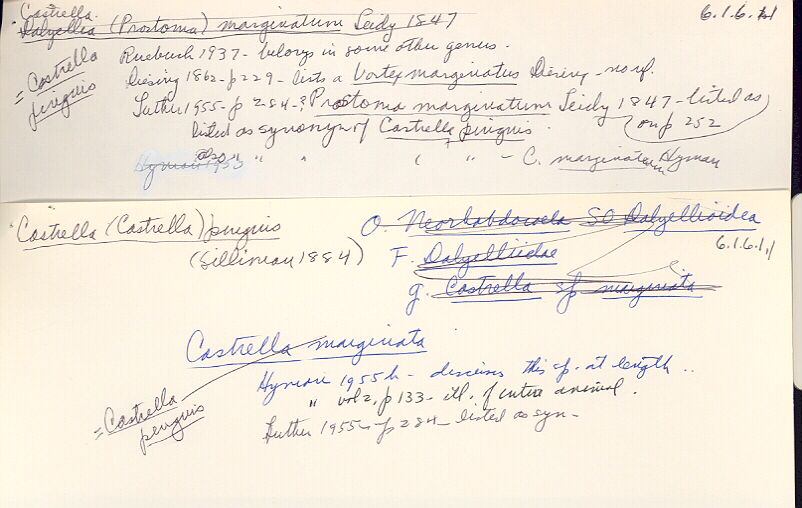 Castrella
Dalyellia (Prostoma) marginatum Leidy 1847
6.1.6.
= Castrella pinguis
Ruebush 1937 - belongs in some other genus.
Diesing 1862 - p 229 - lists a Vortex marginatus Diesing - no rf.
Luther 1955 - p 284 - ? Prostoma marginatum Leidy 1847 - listed as
on p 252
listed as synonym of Castrella pinguis.
Hyman 1955 also " " " ( " " - C. marginatum Hyman
"Castrella (Castrella) pinguis
(Silliman 1884)
O. Neorhabdocoela SO Dalyellioidea
6.1.6.1.1
F. Dalyelliidae
g. Castrella sp marginata
Castrella marginata
Hyman 1955 h - discusses this sp. at length ..
" vol 2, p 133 - ill. of entire animal.
= Castrella pinguis
Luther 1955 - p 284 - listed as syn -